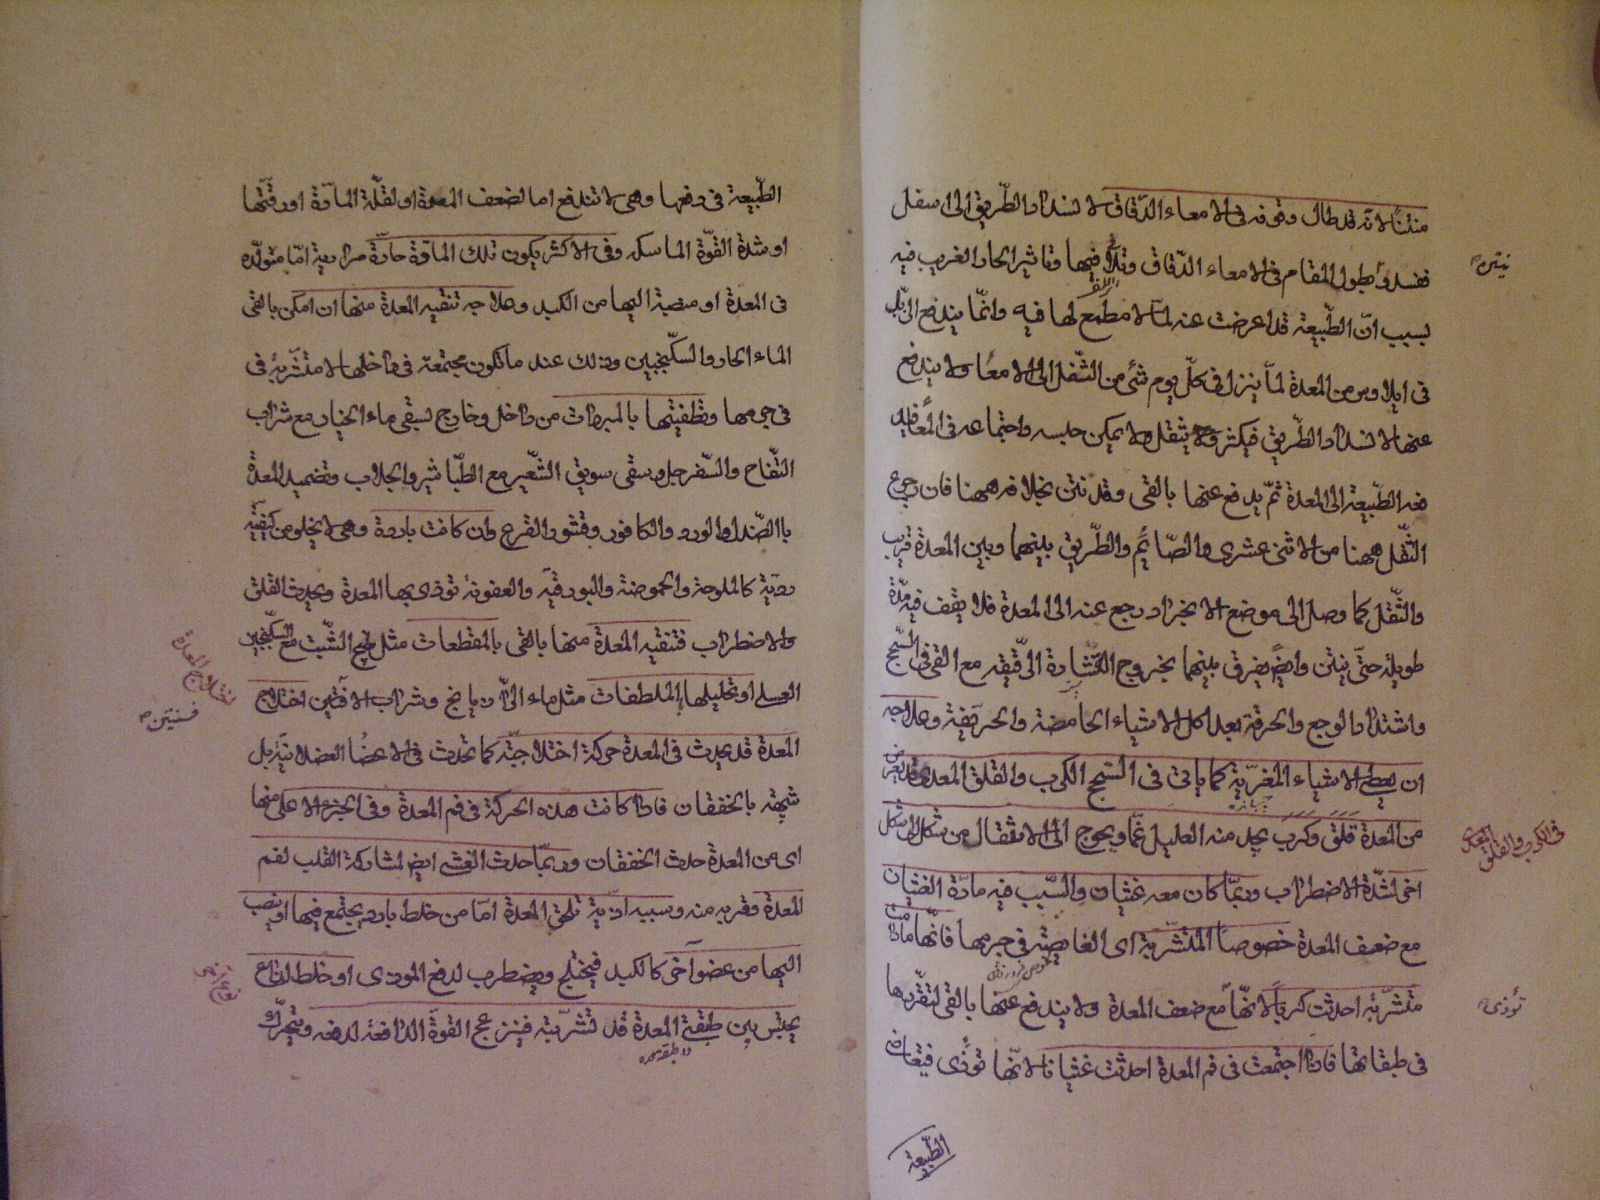 منتنا لانه قد طال وقوفه فى الامعاء الدقاق لانسداد الطريق الى اسفل
نيتن
فيفسد بطول المقام فى الامعاء الدقاق فيها وتاثير الحار الغريب فيه
بسبب ان الطبيعة قد اعرضت عنه لما لا مطمع لها فيه وانما يندفع الى
فى ايلاوس من المعدة لما ينزل فى كل يوم شئ من الثفل الى الامعاء ولا يندفع
عنها لانسداد الطريق فيكثر ويثقل ولا يمكن حبسه واجتماعه فى المعا
الطبيعة الى المعدة ثم يدفع عنها بالقى وقد نتن بخلافه ههنا فان رجوع
الثفل ههنا من الاثنى عشرى والصائم والطريق بينهما وبين المعدة قريب
والثفل كما وصل الى موضع الانجراد رجع عنه الى المعدة فلا يقف فيه مدة
طويلة حتى ينتن وايضا يفرق بينهما بخروج القشارة الرقيقه مع القى فى السحج
واشتداد الوجع والحرقة بعد اكل الاشياء الحامضة والحريفية وعلاجه
ان يعطى الاشياء المغرية كما ياتى فى السحج الكرب والقلق المعدى قد يعرض
فى الكرب والقلق المعدى
من المعدة قلق وكرب يجد منه العليل غما ويحوج الى الانتقال من شكل الى شكل
اخر لشدة الاضطراب وربما كان معه غثيان والسبب فيه مادة الغثيان
مع ضعف المعدة خصوصا المتشربة اى الغائصة فى جرمها فانها مادامت
متشربة احدثت كربا لانها مع ضعف المعدة ولا يندفع عنها بالقى لتفرقها
تؤذى
فى طبقاتها فاذا اجتمعت فى فم المعدة احدثت غثيانا لانها تؤذى
الطبيعة
الطبيعة فى دفعها وهى لا تندفع اما لضعف المعدة او لقلة المادة او رقتها
او شدة القوة الماسكه وفى الاكثر يكون تلك المادة حادة مرارية اما متولده
فى المعدة او منصبة اليها من الكبد وعلاجه تنقيه المعدة منها ان امكن بالقى
الماء الحار والسكنجبين وذلك عند ما تكون مجتمعة فى داخلها لا متشربة فى
فى جرمها وتطفيتها بالمبردات من داخل وخارج بسقى ماء الخيار مع شراب
التفاح والسفرجل وسقى سويق الشعير مع الطباشير والجلاب وتضميد المعدة
بالصندل والورد والكافور وقشور القرع وان كانت باردة وهى لا يخلو من كيفية
ردية كالملوحة والحموضة والبورقية والعفونة تؤذى بها المعدة ويحدث القلق
والاضطراب فتنقيه المعدة منها بالقى بالمقطعات مثل طبيخ الشبت مع السكنجبين
العسلى او تحليلها بالملطفات مثل ماء الرازيانج وشراب الافسنتين اختلاج
فسنتين
المعدة قد يحدث فى المعدة حركة اختلاجية كما تحدث فى الاعضا العضلانية بل
شبيهة بالخفقان فاذا كانت هذه الحركة فى فم المعدة وفى الجزء الاعلى منها
اى من المعدة حدث الخفقان وربما حدث الغشى ايضا لمشاركة القلب لفم
المعدة وقربه منه وسببه اذية تلحق المعدة اما من خلط بارد يجتمع فيها او ينصب
اليها من عضو آخر كالكبد فيختلج ويضطرب لدفع الموذى او خلط لذاع
يحتبس بين طبقة المعدة قد تشربته فينزعج القوة الدافعة لدفعه ويتحرك